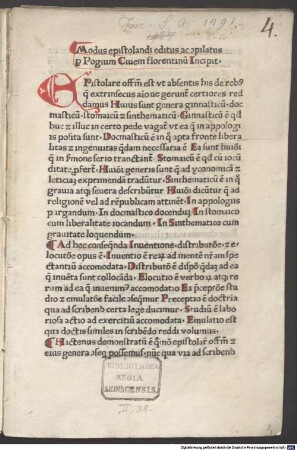 Inc. s. a. 1491
4.
Modus epistolandi editus ac opilatus
p Pogium Ciuem florentinū Incipit.
EPistolare offm̄ est vt absentis his de rebꝰ
q extrinsecus aīo vigerunt certiores red
damus Huius sunt genera ginnasticū doc
masticū stomaicū z sinthematicū Ginnasticū ē qd
huc z illuc in certo pede vagat̄ vt ea q̄ in appologis
posita sunt Docmasticū ē in q̄ apta fronte libera
litas z ingenuitas q̄dam necessaria ē Ea sunt huiōi
que in sermone serio tranctant̄ Stomaicū ē qd cū iocū
ditate pfert̄ Huiōi generis sunt q̄ ad yconomicā z
leticiaȝ exprimendā tradūtur Sinthematicū ē in q̄
grauia atqȝ seuera describūtur Huiōi dicūtur q̄ ad
religionē vel ad rēpublicam attinēt In appologis
purgandum In docmastico docendū In stomaico
cum liberalitate iocandum In Sinthematico cum
grauitate loquendum
Ad hec conseqn̄da Inuentione distributōe z e
locutōe opus ē Inuentio ē reȝ ad mentē nr̄am spe
ctantiū accomodata Distributō ē dispōꝗ̄daȝ ad ea
q̄ inuēta sunt collocāda Elocutio ē verboȝ atqȝ
rum ad ea q̄ inuenimꝰ accomodatio Ea pceptōe stu
dio z emulatōe facile aseqmur Preceptio ē doctria
qua ad scribendū certa lege ducimur Studiū ē labo
riosa actio ad exercitiū accomodata Emulatio est
qua doctis similes in scribēdo reddi volumus
Hactenus demonstratū ē qmō epistolar̄ offm̄ z
eius genera aseq possemus nūc qua via ad scribendū
BIBLIOTHECA
REGIA
MONACENSIS.